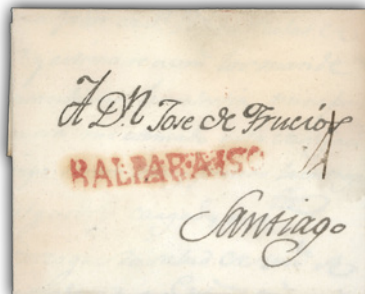 A Dn Jose de Frucióf
BALPARAISO
Santiago